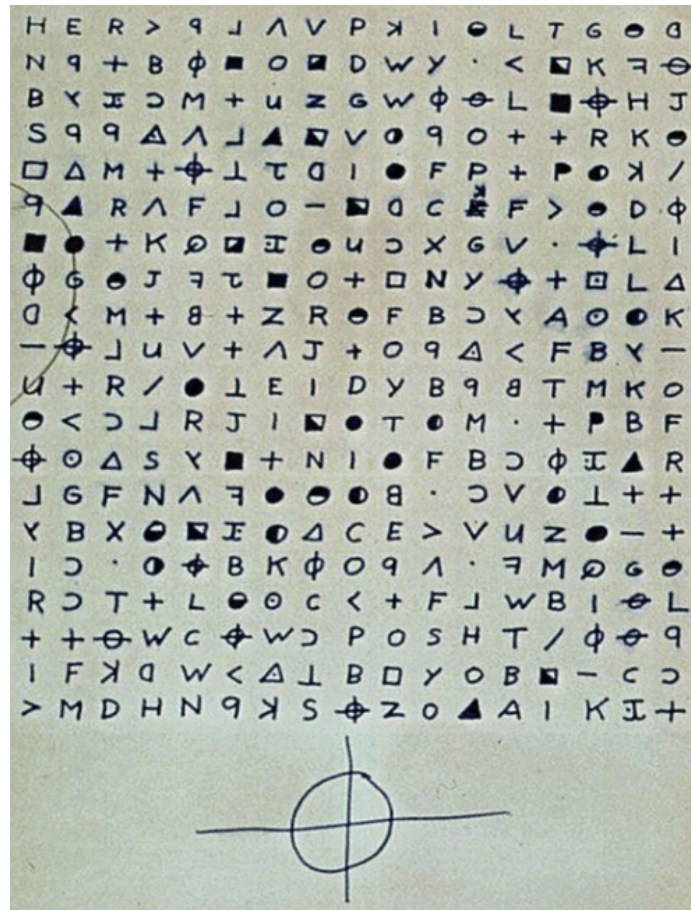 H E R > ꟼ ⅃ Λ V P ꓘ I ◒ L T G ◒ ᗡ
N ꟼ + B ϕ ■ O ◪ D W Y · < ◩ K ꟻ ⊖
B Y Ɪ Ɔ M + U Z G W ϕ ⊖ L ■ ⌖ H J
S ꟼ ꟼ ◬ Λ ⅃ ▲ ◩ V ◑ ꟼ O + + R K ◒
□ △ M + ⌖ ⊥ τ ᗡ I ● F P + P ◐ ꓘ /
ꟼ ▲ R Λ F ⅃ O − ◪ ᗡ C ꓘ F > ◒ D ϕ
■ ● + K ⊘ ◪ Ɪ ◒ U Ɔ X G V · ⌖ L I
ϕ G ◒ J ꟻ τ ■ O + □ N Y ⌖ + ⊡ L △
ᗡ < M + 8 + Z R ◒ F B Ɔ Y A ⊙ ◐ K
− ⌖ ⅃ U V + Λ J + O ꟼ ◬ < F B Y −
U + R / ● ⊥ E I D Y B ꟼ 8 T M K O
◒ < Ɔ ⅃ R J I ◩ ● T ◐ M · + P B F
⌖ ⊙ △ S Y ■ + N I ● F B Ɔ ϕ Ɪ ▲ R
⅃ G F N Λ ꟻ ● ◒ ◐ 8 · Ɔ V ◐ ⊥ + +
Y B X ◒ ◩ Ɪ ◐ △ C E > V U Z ● − +
I Ɔ · ◑ ⌖ B K ϕ O ꟼ Λ · ꟻ M ⊘ G ◒
R Ɔ T + L ◒ ⊙ C < + F ⅃ W B I ⊖ L
+ + ⊖ W C ⌖ W Ɔ P O S H T / ϕ ⊖ ꟼ
I F ꓘ ᗡ W < ◬ ⊥ B □ Y O B ◪ − C Ɔ
> M D H N ꟼ ꓘ S ⌖ Z O ▲ A I K Ɪ +